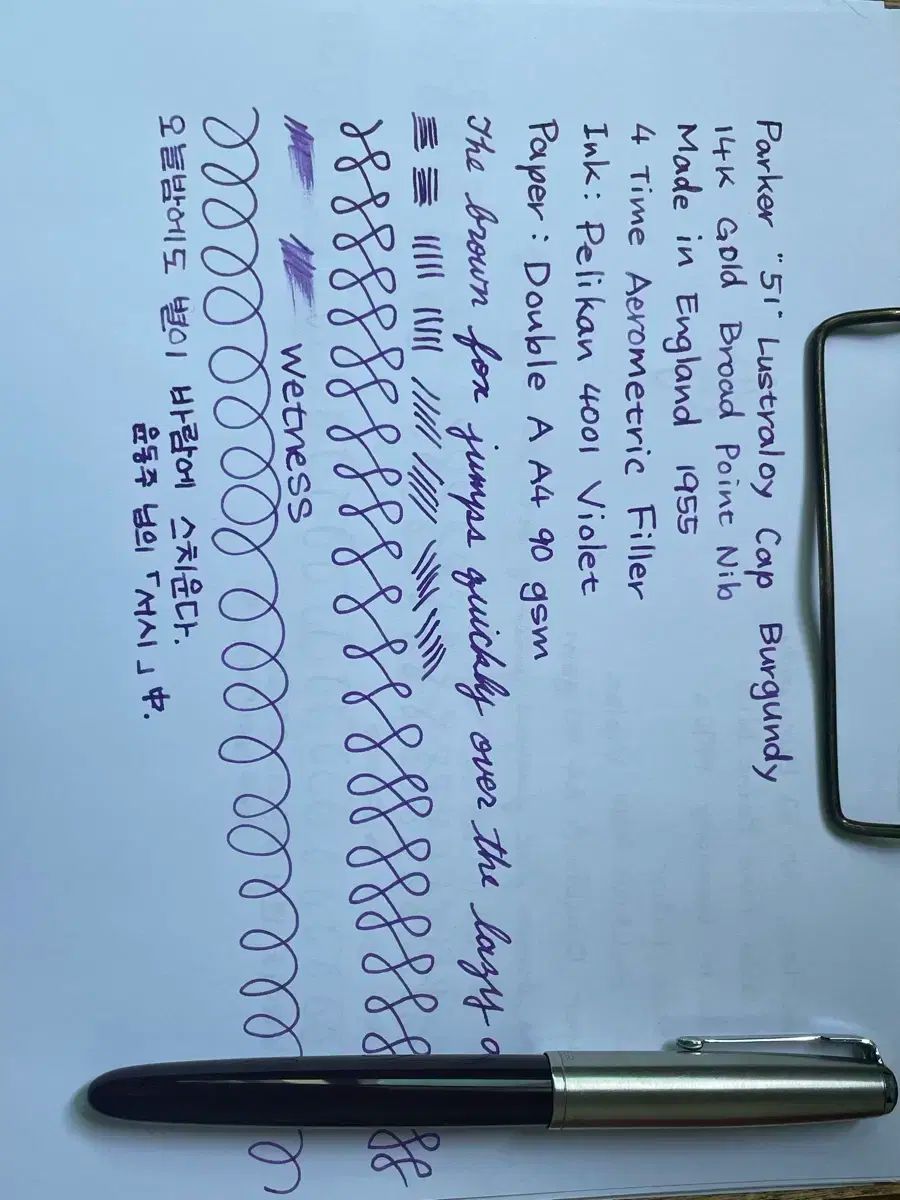 Parker "51" Lustraloy Cap Burgundy
14K Gold Broad Point Nib
Made in England 1955
4 Time Aerometric Filler
Ink : Pelikan 4001 Violet
Paper : Double A A4 90 gsm
The brown fox jumps quickly over the lazy
wetness
오늘밤에도 별이 바람에 스치운다.
윤동주 님의 「서시」 中.